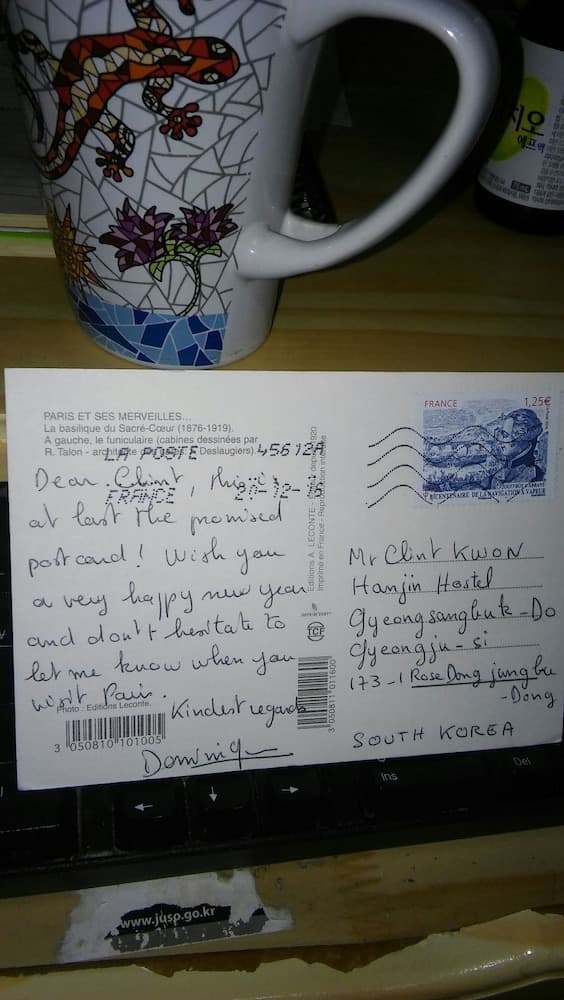 지오
에프액
PARIS ET SES MERVEILLES...
La basilique du Sacré-Cœur (1876-1919).
A gauche, le funiculaire (cabines dessinées par
R. Talon - architecte Deslaugiers).
LA POSTE 45612A
FRANCE 20-12-16
FRANCE 1,25€
BICENTENAIRE DE LA NAVIGATION À VAPEUR
Dear Clint, this is
at last the promised
postcard! Wish you
a very happy new year
and don't hesitate to
let me know when you
visit Paris.
Kindest regards
Dominique
Photo : Editions Leconte.
3 050810 101005
Editions A. LECONTE
Imprimé en France
TCF
3 059811 011600
Mr Clint KWON
Hanjin Hostel
Gyeongsangbuk-Do
Gyeongju-si
173-1 Rose Dong jungbu
-Dong
SOUTH KOREA
Ins
Del
www.jusp.go.kr